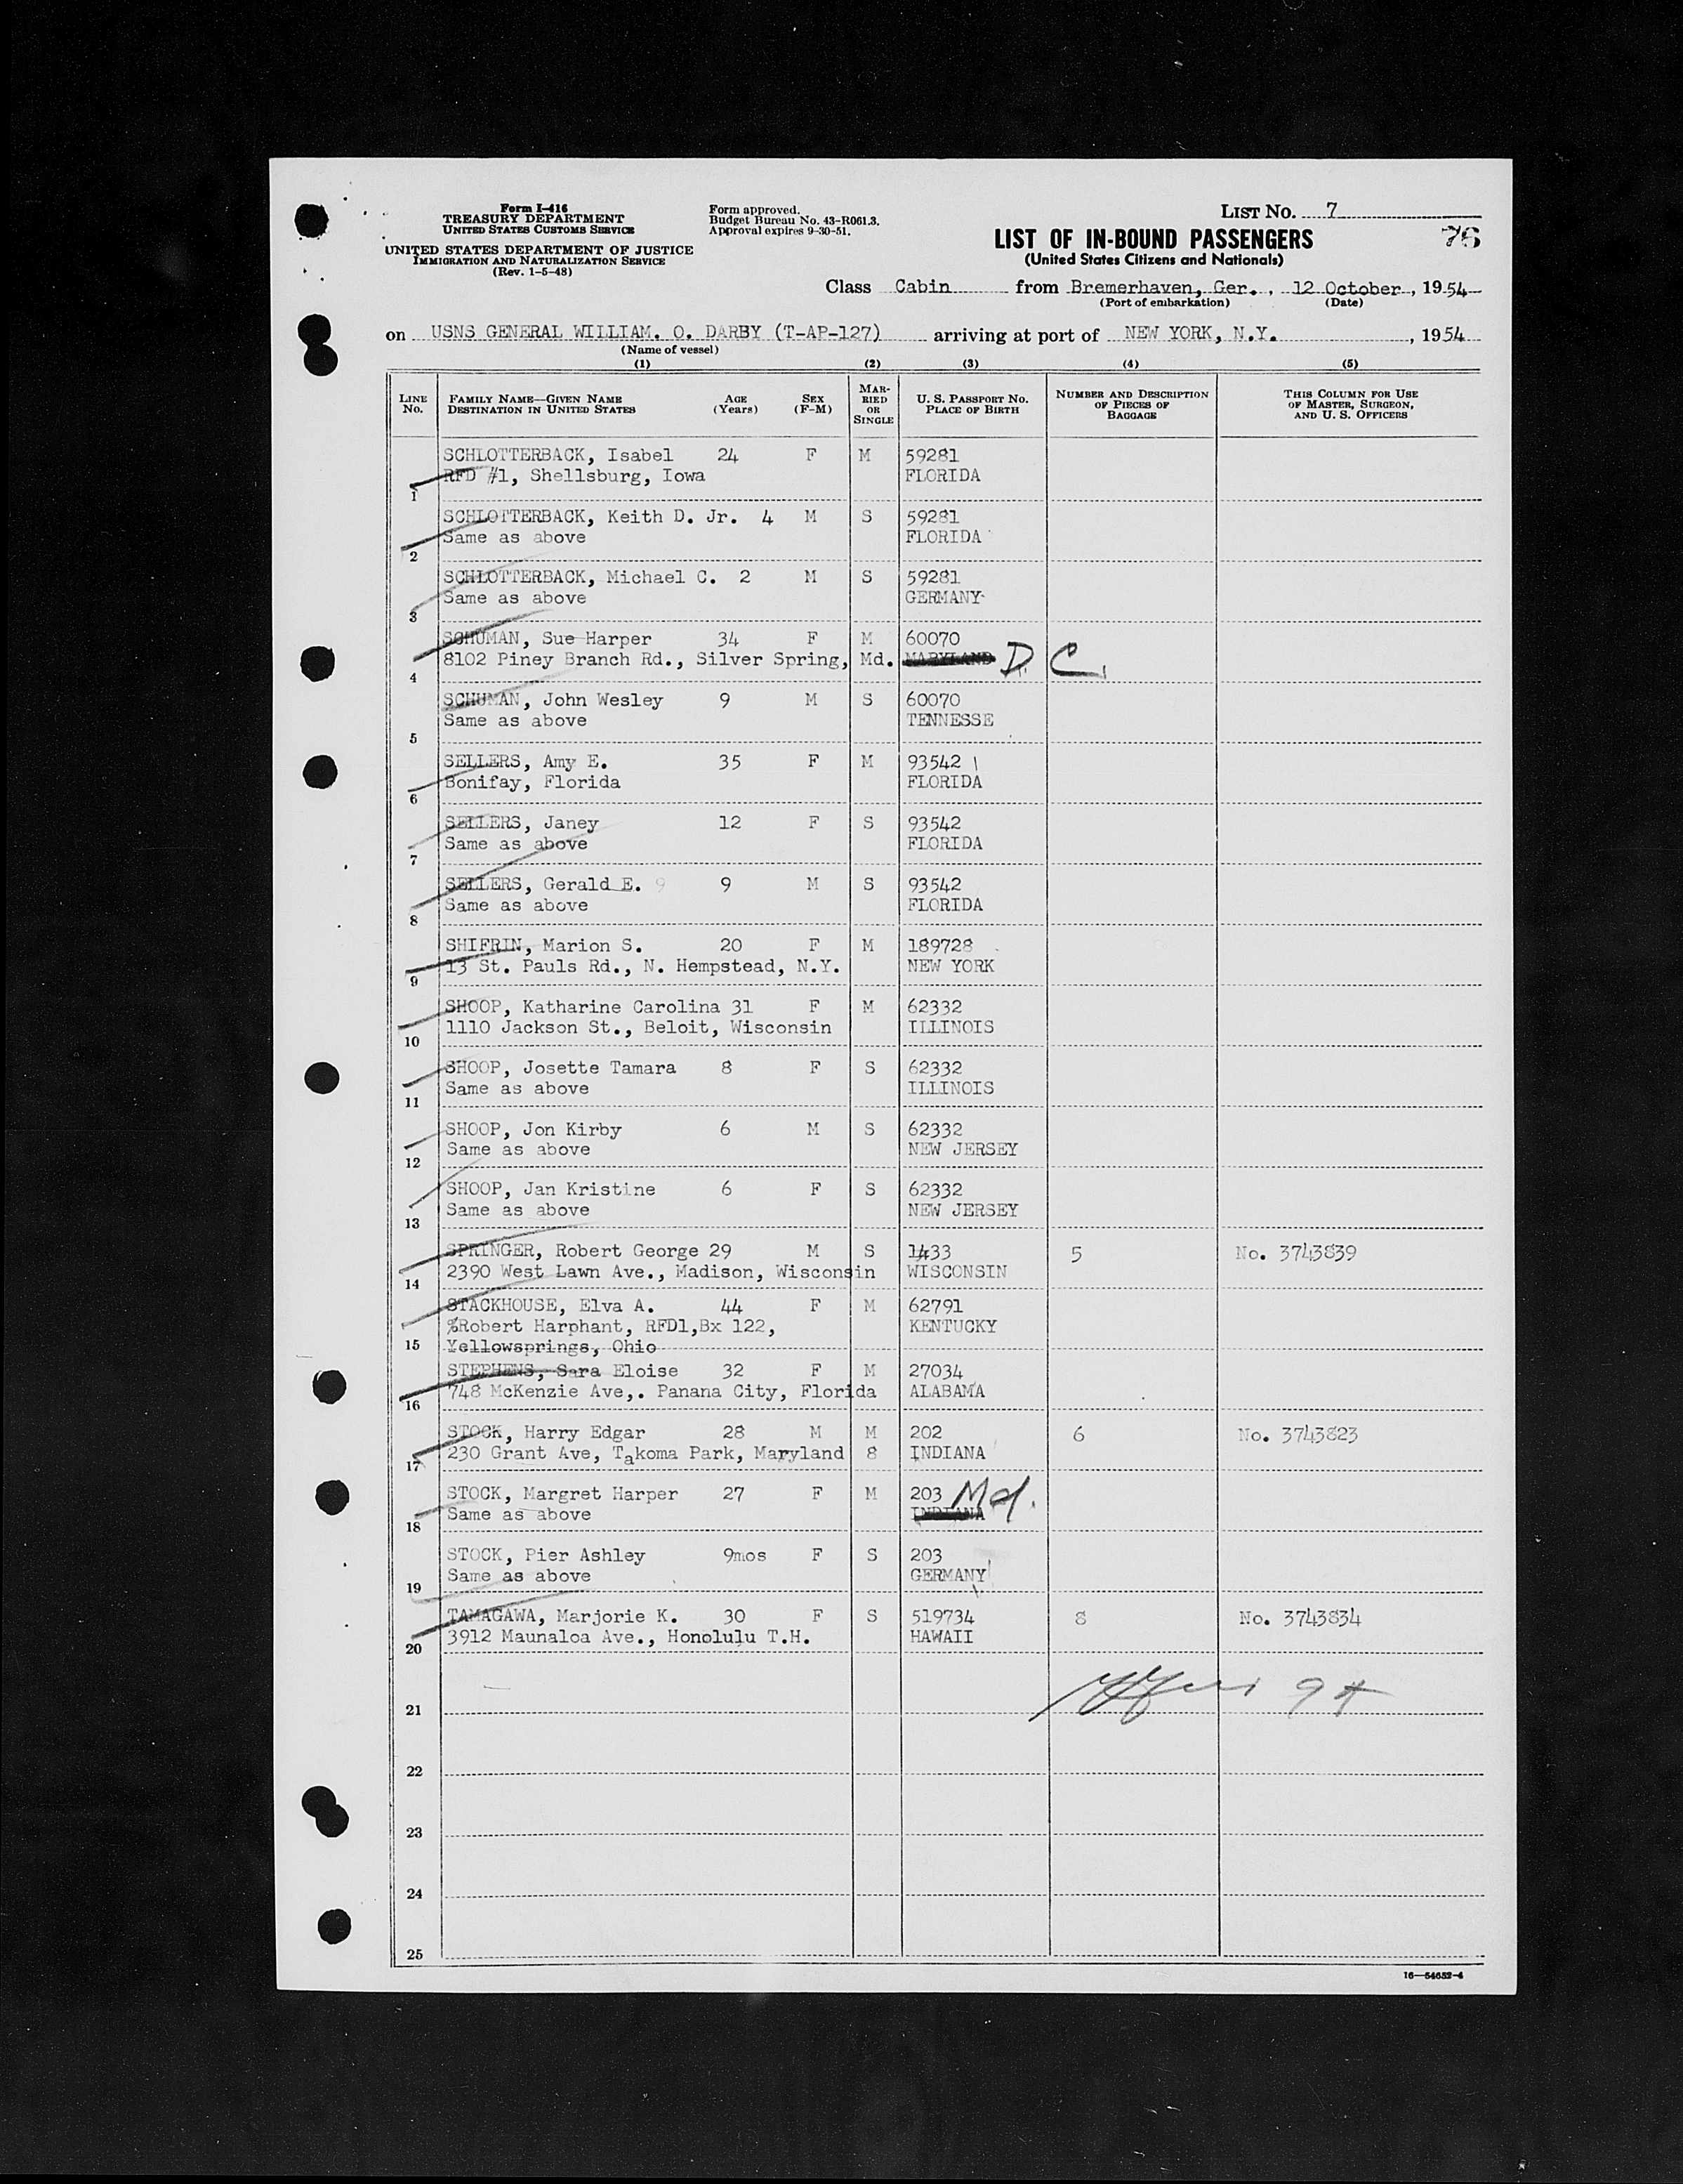 Form I-416
TREASURY DEPARTMENT
UNITED STATES CUSTOMS SERVICE
UNITED STATES DEPARTMENT OF JUSTICE
IMMIGRATION AND NATURALIZATION SERVICE
(Rev. 1-5-48)
Form approved.
Budget Bureau No. 43-R061.3.
Approval expires 9-30-51.
LIST NO. 7
LIST OF IN-BOUND PASSENGERS 76
(United States Citizens and Nationals)
Class Cabin from Bremerhaven, Ger., 12 October, 1954
(Port of embarkation) (Date)
on USNS GENERAL WILLIAM. O. DARBY (T-AP-127) arriving at port of NEW YORK, N.Y. , 1954
(Name of vessel)
(1) (2) (3) (4) (5)
LINE NO. FAMILY NAME—GIVEN NAME DESTINATION IN UNITED STATES AGE (Years) SEX (F-M) MARRIED OR SINGLE U. S. PASSPORT NO. PLACE OF BIRTH NUMBER AND DESCRIPTION OF PIECES OF BAGGAGE THIS COLUMN FOR USE OF MASTER, SURGEON, AND U. S. OFFICERS
SCHLOTTERBACK, Isabel 24 F M 59281
1 RFD #1, Shellsburg, Iowa FLORIDA
SCHLOTTERBACK, Keith D. Jr. 4 M S 59281
2 Same as above FLORIDA
SCHLOTTERBACK, Michael C. 2 M S 59281
3 Same as above GERMANY
SCHUMAN, Sue Harper 34 F M 60070
4 8102 Piney Branch Rd., Silver Spring, Md. MARYLAND D.C.
SCHUMAN, John Wesley 9 M S 60070
5 Same as above TENNESSE
SELLERS, Amy E. 35 F M 93542
6 Bonifay, Florida FLORIDA
SELLERS, Janey 12 F S 93542
7 Same as above FLORIDA
SELLERS, Gerald E. 9 9 M S 93542
8 Same as above FLORIDA
SHIFRIN, Marion S. 20 F M 189728
9 13 St. Pauls Rd., N. Hempstead, N.Y. NEW YORK
SHOOP, Katharine Carolina 31 F M 62332
10 1110 Jackson St., Beloit, Wisconsin ILLINOIS
SHOOP, Josette Tamara 8 F S 62332
11 Same as above ILLINOIS
SHOOP, Jon Kirby 6 M S 62332
12 Same as above NEW JERSEY
SHOOP, Jan Kristine 6 F S 62332
13 Same as above NEW JERSEY
SPRINGER, Robert George 29 M S 1433 5 No. 3743839
14 2390 West Lawn Ave., Madison, Wisconsin WISCONSIN
STACKHOUSE, Elva A. 44 F M 62791
%Robert Harphant, RFD1,Bx 122, KENTUCKY
15 Yellowsprings, Ohio
STEPHENS, Sara Eloise 32 F M 27034
16 748 McKenzie Ave,. Panana City, Florida ALABAMA
STOCK, Harry Edgar 28 M M 202 6 No. 3743823
17 230 Grant Ave, Takoma Park, Maryland 8 INDIANA
STOCK, Margret Harper 27 F M 203 Md.
18 Same as above INDIANA
STOCK, Pier Ashley 9mos F S 203
19 Same as above GERMANY
TAMAGAWA, Marjorie K. 30 F S 519734 8 No. 3743834
20 3912 Maunaloa Ave., Honolulu T.H. HAWAII
21
22
23
24
25
16—54652-4